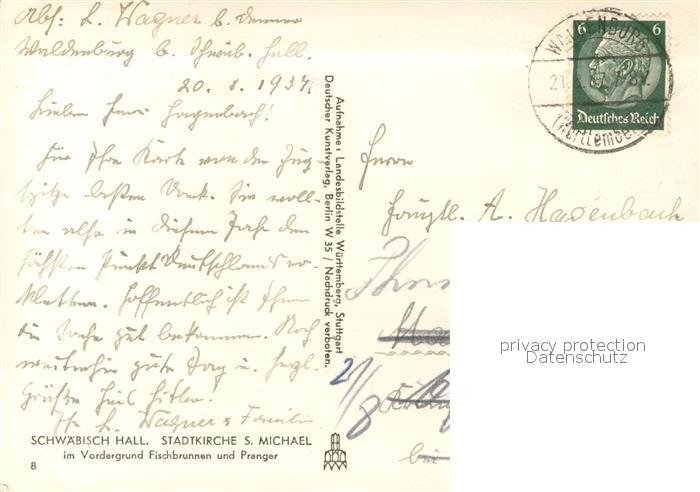 Abs: L. Wagner b. Denner
Waldenburg b. Schwäb. Hall.
20. 8. 1937.
Lieber Herr Hagenbach!
Für Ihre Karte von der Zug-
spitze besten Dank. Sie woll-
ten also in diesem Jahr den
höchsten Punkt Deutschlands er-
klettern. Hoffentlich ist Ihnen
die Sache gut bekommen. Noch
weiterhin gute Tage u. herzl.
Grüße Heil Hitler.
Ihr L. Wagner & Familie
SCHWÄBISCH HALL. STADTKIRCHE S. MICHAEL
im Vordergrund Fischbrunnen und Pranger
8
Aufnahme: Landesbildstelle Württemberg, Stuttgart
Deutscher Kunstverlag, Berlin W 35 / Nachdruck verboten.
WALDENBURG
(Württemberg)
6 6
Deutsches Reich
Herrn
A. Hagenbach
21/8
privacy protection
Datenschutz